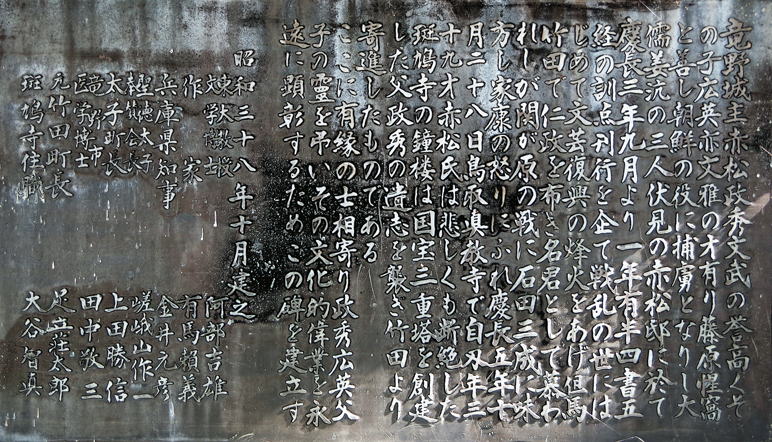 竜野城主赤松政秀文武の誉高くそ
の子広英亦文雅の才有り藤原惺窩
と善し朝鮮の役に捕虜となりし大
儒姜沆の三人伏見の赤松邸に於て
慶長三年九月より一年有半四書五
経の訓点刊行を企て戦乱の世には
じめて文芸復興の烽火をあげ但馬
竹田で仁政を布き名君として慕わ
れしが関が原の戦に石田三成に味
方し家康の怒りにふれ慶長五年十
月二十八日鳥取真教寺で自刃年三
十九才赤松氏は悲しくも断絶した
斑鳩寺の鐘楼は国宝三重塔を創建
した父政秀の遺志を襲ぎ竹田より
寄進したものである
ここに有縁の士相寄り政秀広英父
子の霊を弔いその文化的偉業を永
遠に顕彰するためこの碑を建立す
昭和三十八年十月建之
阿部吉雄
作家 有馬頼義
兵庫県知事 金井元彦
嵯峨山作一
太子町長 上田勝信
医学博士 田中敬三
元竹田町長 足立荘太郎
斑鳩寺住職 大谷智真